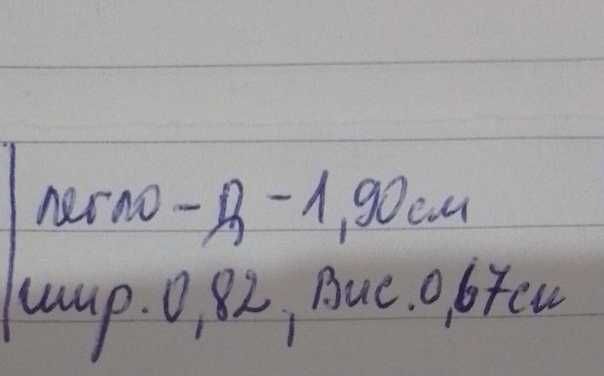 легло - Д - 1,90см
шир. 0,82, Вис. 0,67см